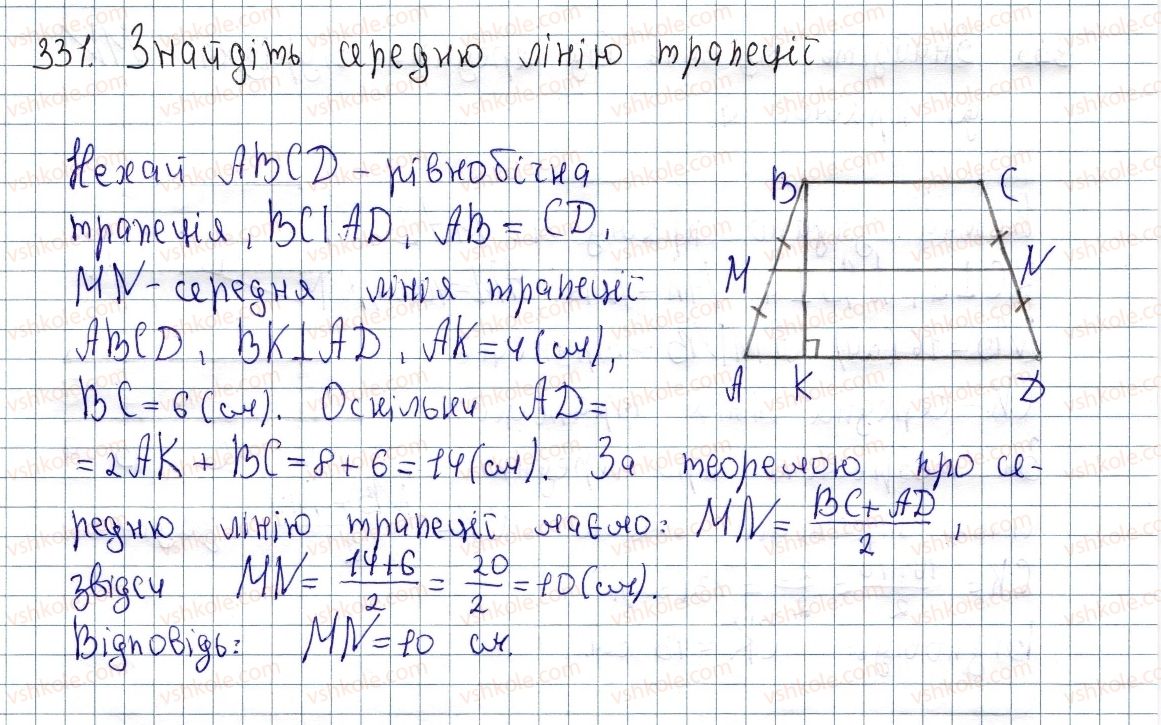 331. Знайдіть середню лінію трапеції
Нехай ABCD – рівнобічна
трапеція, BC||AD, AB = CD,
MN – середня лінія трапеції
ABCD, BK⊥AD, AK = 4 (см),
BC = 6 (см). Оскільки AD =
= 2AK + BC = 8 + 6 = 14 (см). За теоремою про се-
редню лінію трапеції маємо: MN = (BC + AD)/2,
звідси MN = (14+6)/2 = 20/2 = 10 (см).
Відповідь: MN = 10 см.
B C
M N
A K D
vshkole.com